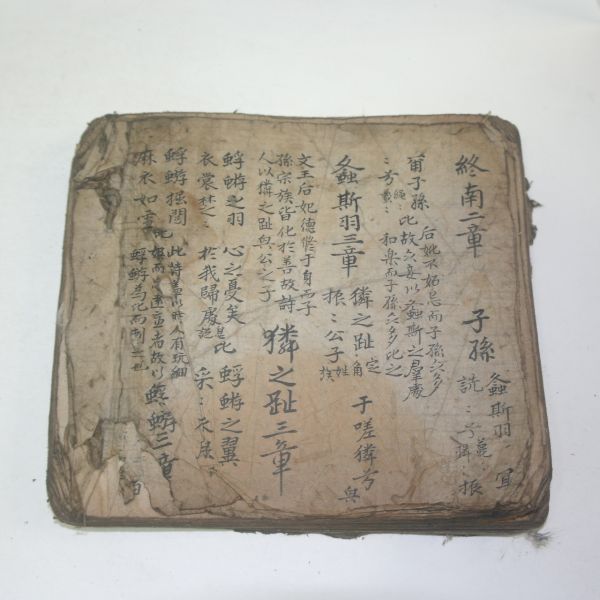 終南二章 子孫
螽斯羽 宜
詵〻兮 振
甭子孫
后妃不妬忌而子孫众多
〻兮 繩〻 比故众妾以螽斯之羣處
和樂而子孫众多比之
螽斯羽三章 獜之趾 定角 于嗟獜兮 興
振〻公子 姓族
文王后妃德脩于身而子
孫宗族皆化於善故詩
人以獜之趾興公之子
獜之趾三章
蜉蝣之羽 心之憂矣 比 蜉蝣之翼
衣裳楚〻 於我歸處 采〻衣服
蜉蝣掘閱 比 此詩盖以時人有玩細
麻衣如雪 娛而 者故以
蜉蝣爲比而刺之
蜉蝣三章